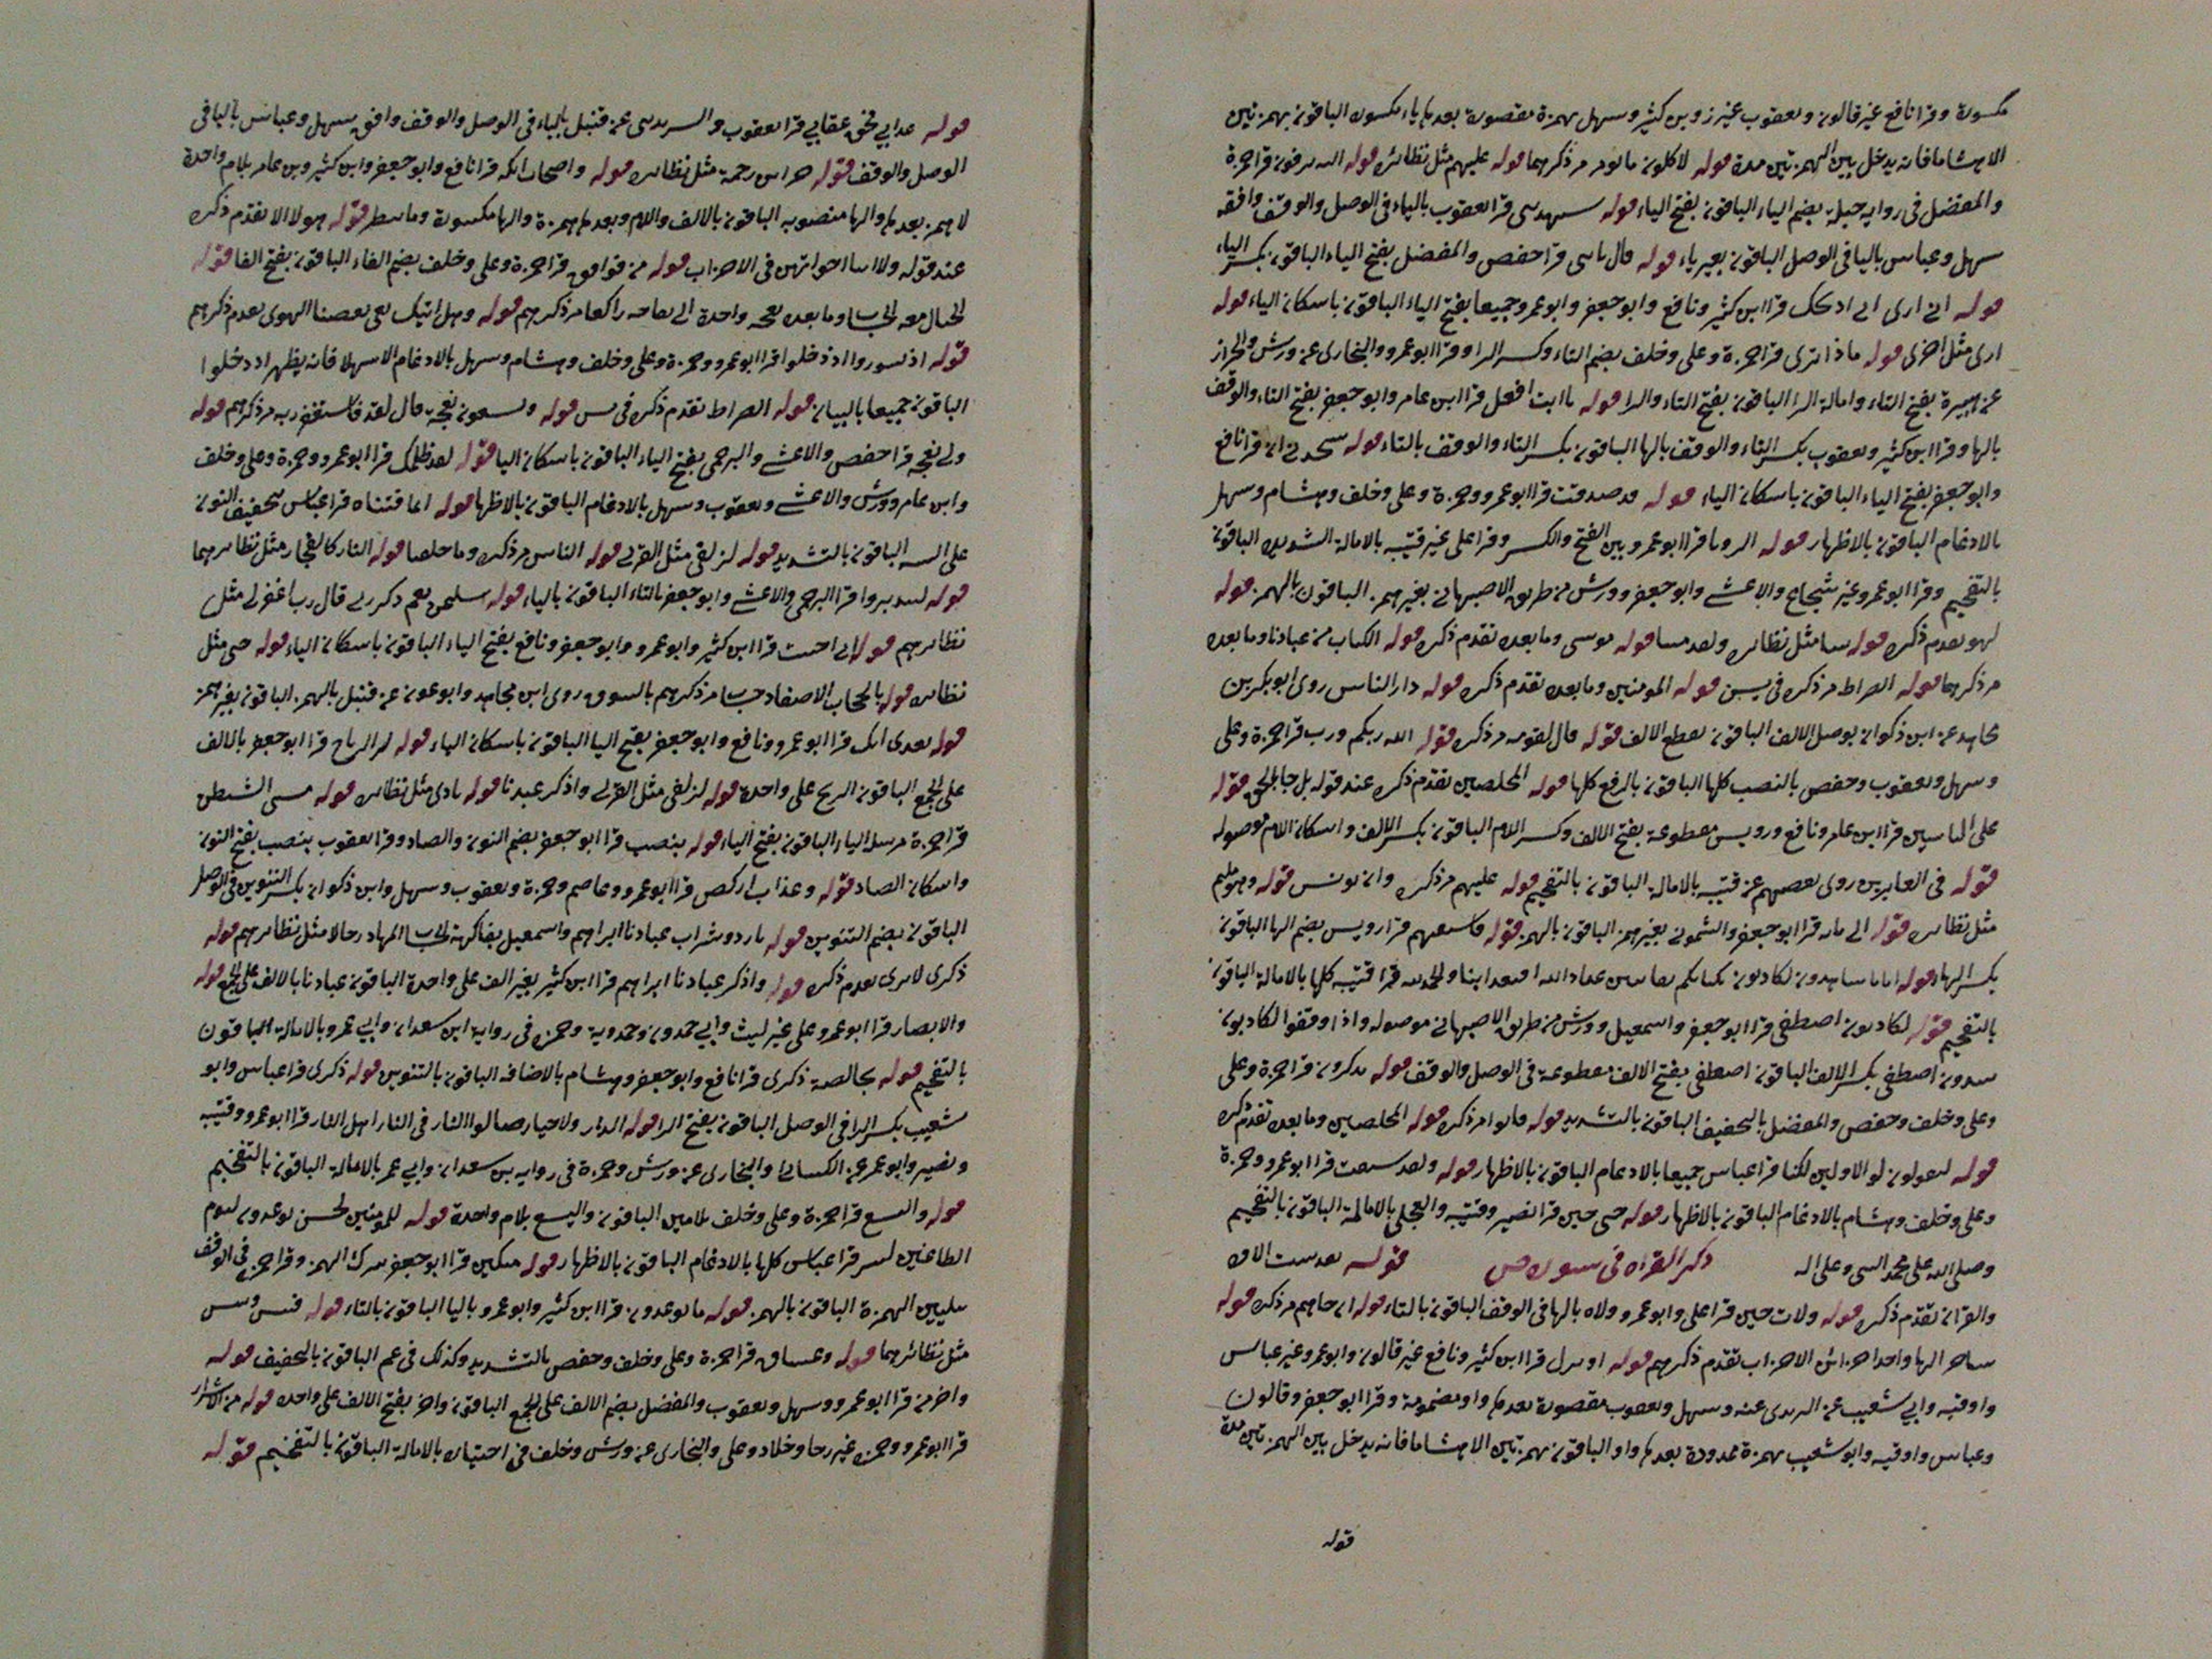 مكسورة وقرا نافع غير قالون ويعقوب غير زوبن كثير وسهل بهمزة مقصورة بعدها ياء مكسوره الباقون بهمزتين
الا هشاما فانه يدخل بين الهمزتين مدة قوله لاكلون مالون مر ذكرهما قوله عليهم مثل نظائره قوله اليه يزفون قرا حمزة
والمفضل في روايه جبلة بضم الياء الباقون بفتح الياء قوله سيهدين قرا يعقوب بالياء في الوصل والوقف وافقه
سهل وعباس باليا في الوصل الباقون بغير ياء قوله قال يابنى قرا حفص والمفضل بفتح الياء الباقون بكسر الياء
قوله اني ارى اني اذبحك قرا ابن كثير ونافع وابو جعفر وابو عمرو جميعا بفتح الياء الباقون باسكان الياء قوله
ارى مثل اخرى قوله ماذا ترى قرا حمزة وعلى وخلف بضم التاء وكسر الرا وقرا ابو عمرو والبخارى عن ورش والخراز
عن هبيرة بفتح التاء وامالة الرا الباقون بفتح التاء والرا قوله ياابت افعل قرا ابن عامر وابو جعفر بفتح التاء والوقف
بالها وقرا ابن كثير ويعقوب بكسر التاء والوقف بالها الباقون بكسر التاء والوقف بالتاء قوله ستجدني ان قرا نافع
وابو جعفر بفتح الياء الباقون باسكان الياء قوله قد صدقت قرا ابو عمرو وحمزة وعلى وخلف وهشام وسهل
بالادغام الباقون بالاظهار قوله الرويا قرا ابو عمرو بين الفتح والكسر وقرا على غير قتيبه بالامالة الشديده الباقون
بالتفخيم وقرا ابو عمرو غير شجاع والاعشے وابو جعفر وورش من طريق الاصبهاني بغير همز الباقون بالهمز قوله
لهو تقدم ذكره قوله نبيا مثل نظائره ولقد مننا قوله موسى وما بعده تقدم ذكره قوله الكتاب من عبادنا وما بعده
مر ذكرهما قوله الصراط مر ذكره في يسن قوله المومنين وما بعده تقدم ذكره قوله دار الناس روى ابو بكر بن
مجاهد عن ابن ذكوان بوصل الالف الباقون بقطع الالف قوله قال لقومه مر ذكره قوله الله ربكم ورب قرا حمزة وعلى
وسهل ويعقوب وحفص بالنصب كلها الباقون بالرفع كلها قوله المخلصين تقدم ذكره عند قوله بل جا بالحق قوله
على الياسين قرا ابن عامر ونافع ورويس مقطوعة بفتح الالف وكسر اللام الباقون بكسر الالف واسكان اللام موصوله
قوله في الغابرين روى بعضهم عن قتيبه بالامالة الباقون بالتفخيم قوله عليهم مر ذكره وان يونس قوله وهو مليم
مثل نظائره قوله الى مايه قرا ابو جعفر والشموني بغير همز الباقون بالهمز قوله فاستفتهم قرا رويس بضم الها الباقون
بكسر الهاء قوله اناثا شاهدون لكاذبون بكتابكم عباد الله قرا قتيبه كلها بالامالة الباقون
بالتفخيم قوله لكاذبون اصطفى قرا ابو جعفر واسمعيل وورش من طريق الاصبهاني موصوله واذا وقفوا لكاذبون
يبدون اصطفى بكسر الالف الباقون اصطفى بفتح الالف مقطوعة في الوصل والوقف قوله تذكرون قرا حمزة وعلى
وعلى وخلف وحفص والمفضل بالتخفيف الباقون بالتشديد قوله فاتوا مر ذكره قوله المخلصين وما بعده تقدم ذكره
قوله ليقولون لو الاولين لكنا قرا عباس جميعا بالادغام الباقون بالاظهار قوله ولقد سبقت قرا ابو عمرو وحمزة
وعلى وخلف وهشام بالادغام الباقون بالاظهار قوله حتى حين قرا نصير وقتيبه والعجلي بالامالة الباقون بالتفخيم
وصلى الله على محمد النبي وعلى اله ذكر القراه في سورة ص قوله
والقران تقدم ذكره قوله ولات حين قرا على وابو عمرو ولاه بالها في الوقف الباقون بالتاء قوله ان جاهم مر ذكره قوله
ساحر الها واحدا الاحزاب تقدم ذكرهم قوله اونزل قرا ابن كثير ونافع غير قالون وابو عمرو غير عباس
واوقيه وابي شعيب عن اليزيدى عنه وسهل ويعقوب مقصورة بعدها واو مضمومة وقرا ابو جعفر وقالون
وعباس واوقيه وابو شعيب بهمزة ممدودة بعدها واو الباقون بهمزتين الا هشاما فانه يدخل بين الهمزتين مدة
قوله
قوله عذابي فحق عقابي قرا يعقوب والسرنديبى عن قنبل بالياء في الوصل والوقف وافق سهل وعباس باليا في
الوصل والوقف قوله خزاين رحمة مثل نظائره قوله واصحاب ايكه قرا نافع وابو جعفر وابن كثير وبن عامر بلام واحدة
لا همز بعدها والها منصوبه الباقون بالالف واللام وبعدها همزة والها مكسورة وما ينظر قوله هولا الا تقدم ذكره
عند قوله ولا ابنا اخواتهن في الاحزاب قوله من فواق قرا حمزة وعلى وخلف بضم الفاء الباقون بفتح الفا قوله
الجبال معه الحساب وما بعده نعجه واحدة الى نعاجه راكعا مر ذكرهم قوله وهل اتيك بغى بعضنا الهوى تقدم ذكرهم
قوله اذ تسوروا اذ دخلوا قرا ابو عمرو وحمزة وعلى وخلف وهشام وسهل بالادغام الا سهلا فانه يظهر اذ دخلوا
الباقون جميعا بالبيان قوله الصراط تقدم ذكره في يس قوله وتسعون نعجه قال لقد فاستغفر ربه مر ذكرهم قوله
ولي نعجه قرا حفص والاعشے والبرجمى بفتح الياء الباقون باسكان اليا قوله لقد ظلمك قرا ابو عمرو وحمزة وعلى وخلف
وابن عامر وورش والاعشے ويعقوب وسهل بالادغام الباقون بالاظهار قوله انما فتناه قرا عباس بتخفيف النون
على التثنيه الباقون بالتشديد قوله لزلفى مثل القرلى قوله الناس مر ذكره وما خلقنا قوله النار كالفجار مثل نظائرهما
قوله ليدبروا قرا البرجمى والاعشے وابو جعفر بالتاء الباقون بالياء قوله سليمن نعم ذكر ربي قال رب اغفر لي مثل
نظائرهم قوله اني احببت قرا ابن كثير وابو عمرو وابو جعفر ونافع بفتح الياء الباقون باسكان الياء قوله حبى مثل
نظائره قوله بالحجاب الاصفاد حساب مر ذكرهم بالسوق روى ابن مجاهد وابو عون عن قنبل بالهمز الباقون بغير همز
قوله بعدى انك قرا ابو عمرو ونافع وابو جعفر بفتح اليا الباقون باسكان الياء قوله له الرياح قرا ابو جعفر بالالف
على الجمع الباقون الريح على واحدة قوله لزلفى مثل القرلى واذكر عبدنا قوله نادى مثل نظائره قوله مسنى الشيطن
قرا حمزة مرسلة الياء الباقون بفتح الياء قوله بنصب قرا ابو جعفر بضم النون والصاد وقرا يعقوب بنصب بفتح النون
واسكان الصاد قوله وعذاب اركض قرا ابو عمرو وعاصم وحمزة ويعقوب وسهل وابن ذكوان بكسر التنوين في الوصل
الباقون بضم التنوين قوله بارد وشراب عبادنا ابراهيم واسمعيل بفاكهة الحساب المهاد رجالا مثل نظائرهم قوله
ذكرى لاولى تقدم ذكره قوله واذكر عبادنا ابراهيم قرا ابن كثير بغير الف على واحدة الباقون عبادنا بالالف على الجمع قوله
والابصار قرا ابو عمرو وعلى غير ليث وابي حمدون وحمدوية وحمزه في رواية ابن سعدان وابي عمرو بالامالة الباقون
بالتفخيم قوله بخالصة ذكرى قرا نافع وابو جعفر وهشام بالاضافه الباقون بالتنوين قوله ذكرى قرا عباس وابو
شعيب بكسر الرا في الوصل الباقون بفتح الرا قوله الدار والاخيار صالوا النار في النار اهل النار قرا ابو عمرو وقتيبه
ونصير وابو عمر عن الكسائي والبخارى عن ورش وحمزة في روايه بن سعدان وابي عمر بالامالة الباقون بالتفخيم
قوله واليسع قرا حمزة وعلى وخلف بلامين الباقون واليسع بلام واحدة قوله للمومنين لحسن توعدون ليوم
الطاغين لشر قرا عباس كلها بالادغام الباقون بالاظهار قوله متكين قرا ابو جعفر بترك الهمز وقرا حمزه في الوقف
بتليين الهمزة الباقون بالهمز قوله ما توعدون قرا ابن كثير وابو عمرو باليا الباقون بالتاء قوله فبئس وبئس
مثل نظائرهما قوله وغساق قرا حمزة وعلى وخلف وحفص بالتشديد وكذلك في عم الباقون بالتخفيف قوله
واخر من قرا ابو عمرو وسهل ويعقوب والمفضل بضم الالف على الجمع الباقون واخر بفتح الالف على واحده قوله من الاشرار
قرا ابو عمرو وحمزه غير رجا وخلاد وعلى والبخارى عن ورش وخلف في اختياره بالامالة الباقون بالتفخيم قوله